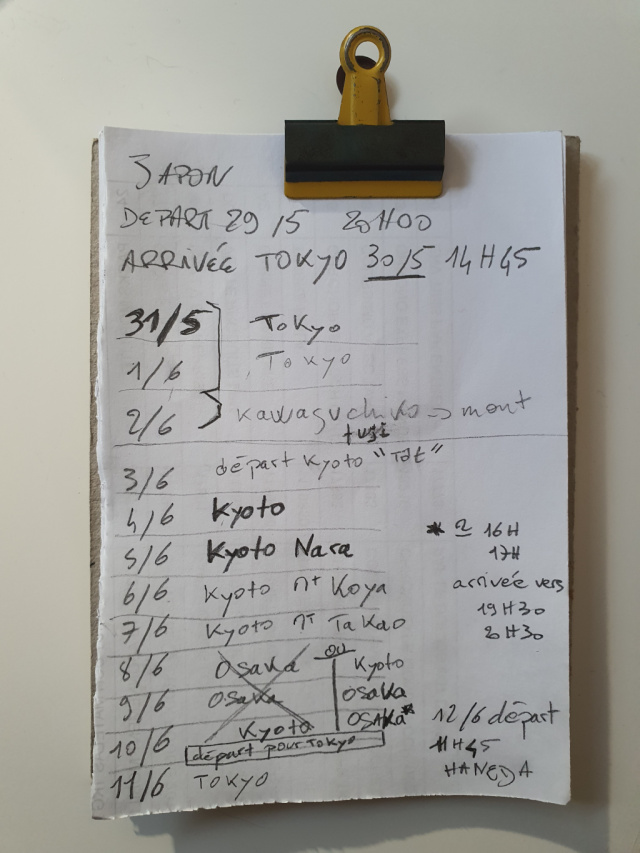 JAPON
DEPART 29/5 20H00
ARRIVÉE TOKYO 30/5 14H45
31/5 Tokyo
1/6 Tokyo
2/6 Kawaguchiko → mont
fuji
3/6 départ Kyoto "Tôt"
4/6 Kyoto
5/6 Kyoto Nara
6/6 Kyoto Mt Koya
7/6 Kyoto Mt Takao
8/6 Osaka ou Kyoto
9/6 Osaka Osaka
Kyoto OSAKA*
10/6 départ pour Tokyo
11/6 TOKYO
* 2 16H
17H
arrivée vers
19H30
20H30
12/6 départ
11H45
HANEDA